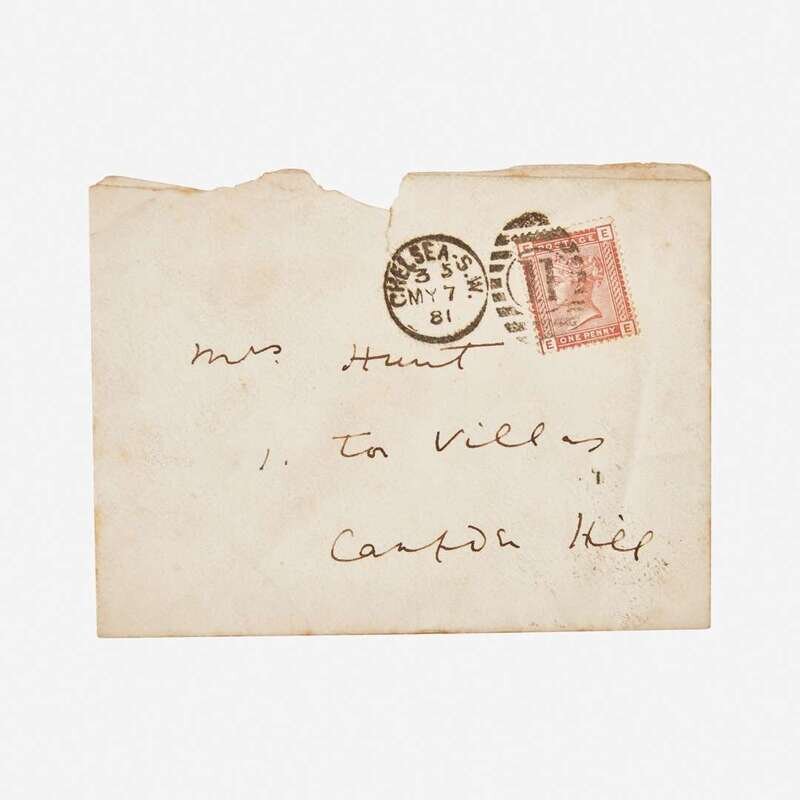 CHELSEA·S.W.
3 5
MY 7
81
E POSTAGE E
E ONE PENNY E
Mrs Hunt
1. Tor Villas
Campden Hill